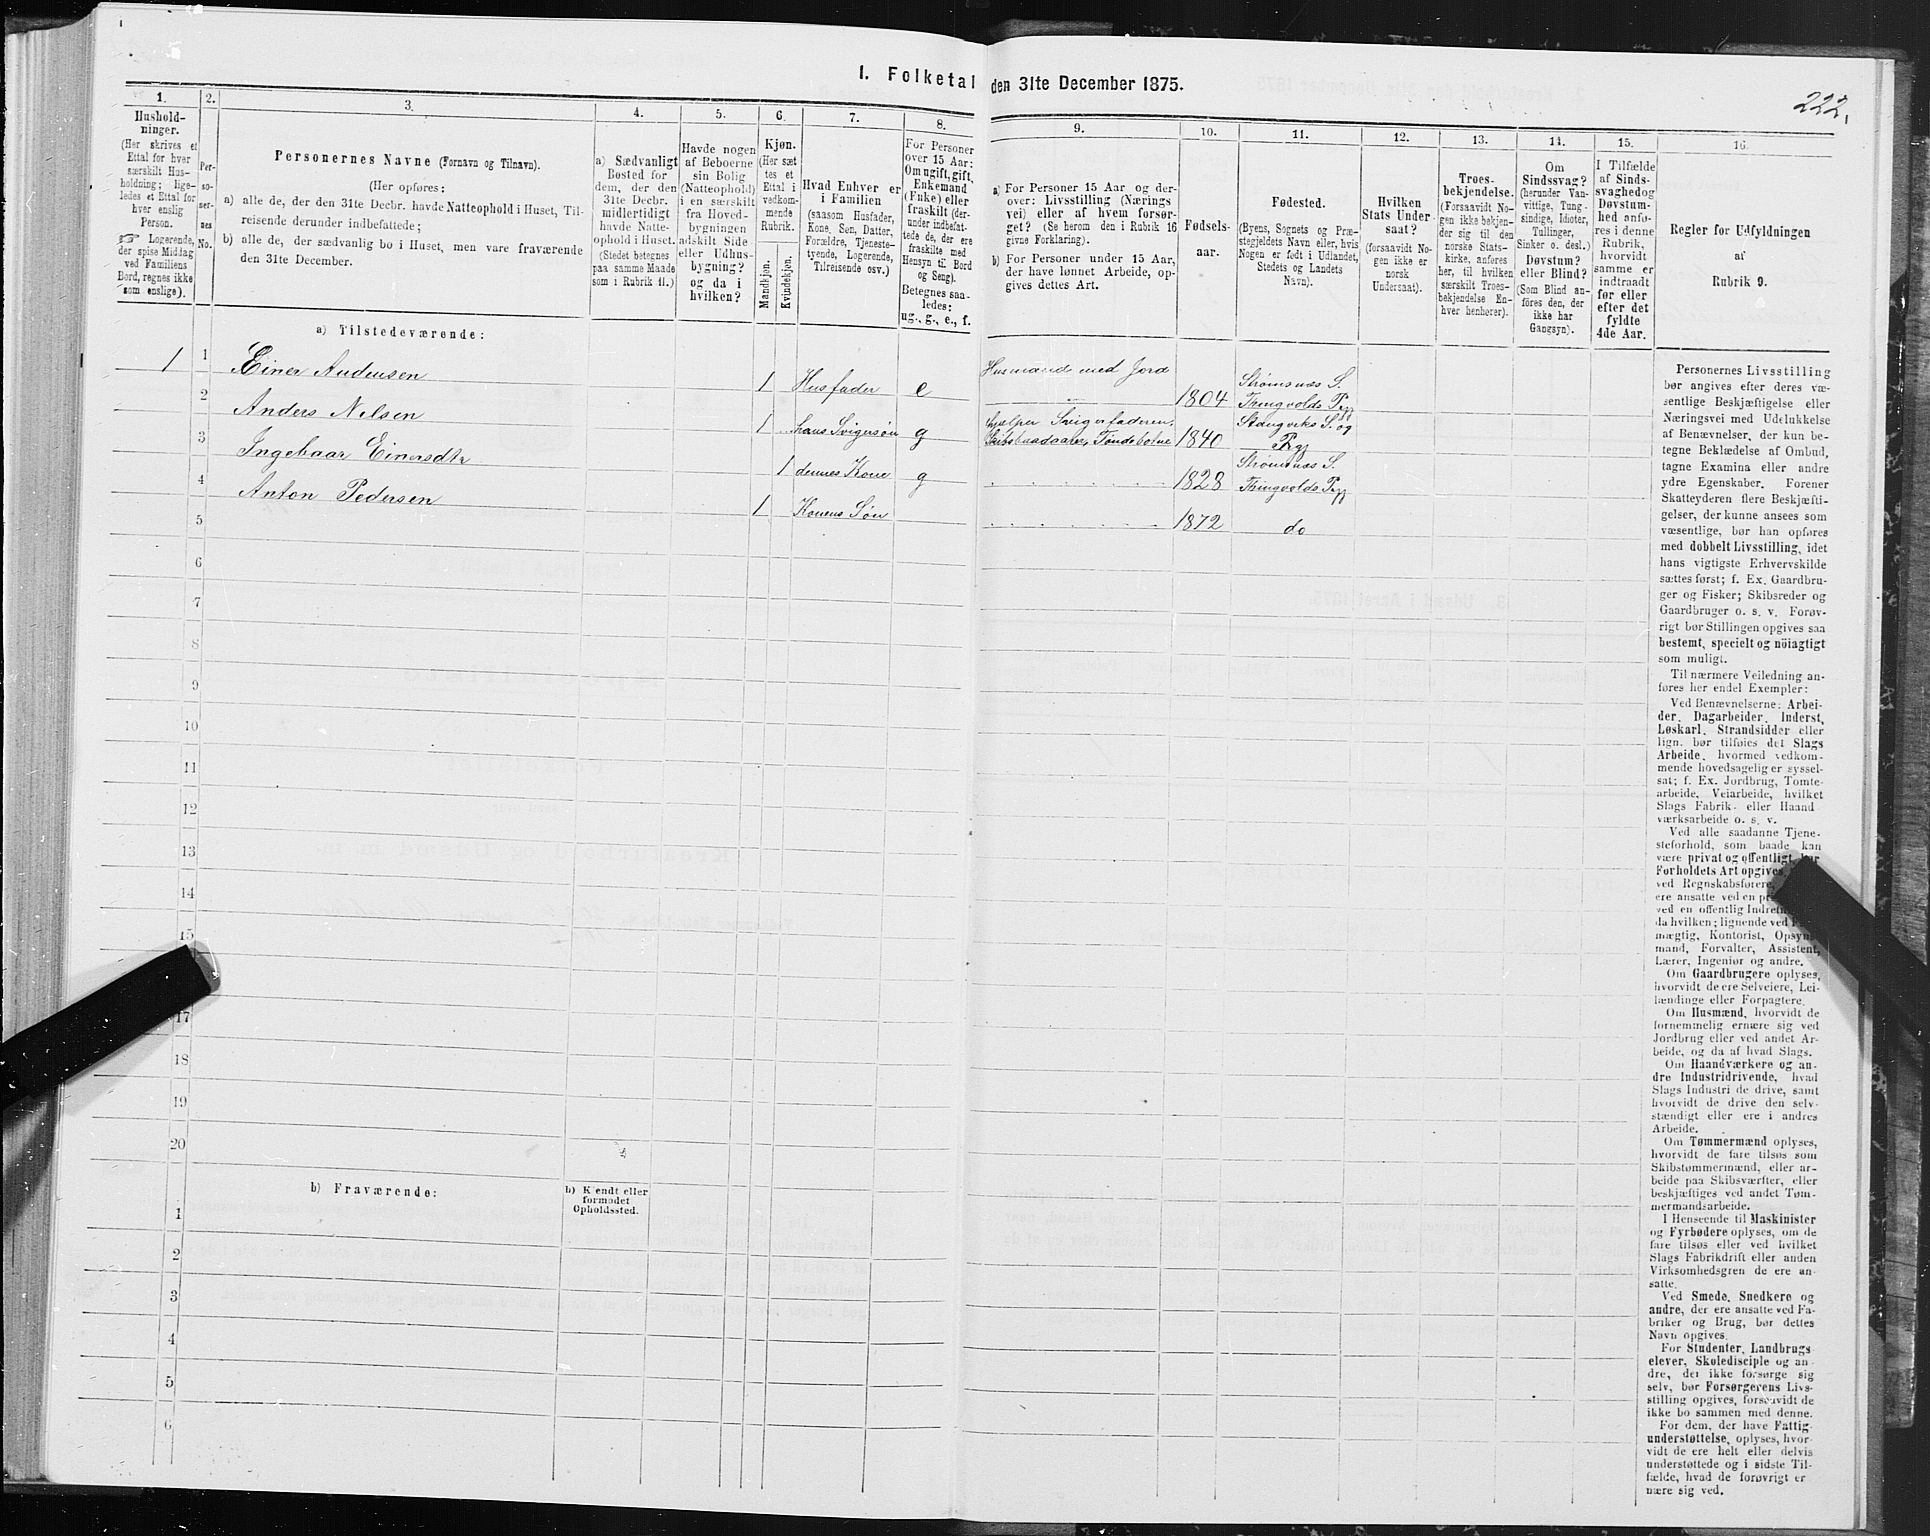 1. Folketal den 31te December 1875.
222.
1.
Hushold-
ninger.
(Her skrives et
Ettal for hver
særskilt Hus-
holdning; lige-
ledes et Ettal for
hver enslig
Person.
☞ Logerende,
der spise Middag
ved Familiens
Bord, regnes ikke
som enslige).
2.
Per-
so-
ner-
nes
No.
3.
Personernes Navne (Fornavn og Tilnavn).
(Her opføres:
a) alle de, der den 31te Decbr. havde Natteophold i Huset, Til-
reisende derunder indbefattede;
b) alle de, der sædvanlig bo i Huset, men vare fraværende
den 31te December.
4.
a) Sædvanligt
Bosted for
dem, der den
31te Decbr.
midlertidigt
havde Natte-
ophold i Huset.
(Stedet betegnes
paa samme Maade
som i Rubrik 11.)
5.
Havde nogen
af Beboerne
sin Bolig
(Natteophold)
i en særskilt
fra Hoved-
bygningen
adskilt Side-
eller Udhus-
bygning?
og da i
hvilken?
6.
Kjøn.
(Her sæt-
tes et
Ettal i
vedkom-
mende
Rubrik.
Mandkjøn.
Kvindekjøn.
7.
Hvad Enhver er
i Familien
(saasom Husfader,
Kone, Søn, Datter,
Forældre, Tjeneste-
tyende, Logerende,
Tilreisende osv.)
8.
For Personer
over 15 Aar:
Om ugift, gift,
Enkemand
(Enke) eller
fraskilt (der-
under indbefat-
tede de, der ere
fraskilte med
Hensyn til Bord
og Seng).
Betegnes saa-
ledes:
ug., g., e., f.
9.
a) For Personer 15 Aar og der-
over: Livsstilling (Nærings-
vei) eller af hvem forsør-
get? (Se herom den i Rubrik 16
givne Forklaring).
b) For Personer under 15 Aar,
der have lønnet Arbeide, op-
gives dettes Art.
10.
Fødsels-
aar.
11.
Fødested.
(Byens, Sognets og Præ-
stegjeldets Navn eller, hvis
Nogen er født i Udlandet,
Stedets og Landets
Navn).
12.
Hvilken
Stats Under-
saat?
(forsaavidt No-
gen ikke er
norsk
Undersaat).
13.
Troes-
bekjendelse.
(Forsaavidt No-
gen ikke bekjen-
der sig til den
norske Stats-
kirke, anføres
her, til hvilken
særskilt Troes-
bekjendelse En-
hver henhører).
14.
Om
Sindssvag?
(herunder Van-
vittige, Tung-
sindige, Idioter,
Tullinger,
Sinker o. desl.)
Døvstum?
eller Blind?
(Som Blind an-
føres den, der
ikke har
Gangsyn).
15.
I Tilfælde
af Sinds-
svaghed og
Døvstum-
hed anfø-
res i denne
Rubrik,
hvorvidt
samme er
indtraadt
før eller
efter det
fyldte
4de Aar.
16.
Regler for Udfyldningen
af
Rubrik 9.
a) Tilstedeværende:
1 1 Einer Andersen 1 Husfader e Husmand med Jord 1804 Strømsnæs S. Thingvolds Pgj
2 Anders Nilsen 1 hans Svigersøn g hjælper Svigerfaderen, 1840 Stangviks S. og Pgj
3 Ingebaar Einersdtr 1 dennes Kone g 1828 Strømsnæs S. Thingvolds Pgj
4 Anton Pedersen 1 Konens Søn 1872 do
5
6
7
8
9
10
11
12
13
14
15
17
18
19
20
b) Fraværende:
b) Kjendt eller
formodet
Opholdssted.
1
2
3
4
5
6
Personernes Livsstilling
bør angives efter deres væ-
sentlige Beskjæftigelse eller
Næringsvei med Udelukkelse
af Benævnelser, der kun be-
tegne Beklædelse af Ombud,
tagne Examina eller andre
ydre Egenskaber. Forener
Skatteyderen flere Beskjæfti-
gelser, der kunne ansees som
væsentlige, bør han opføres
med dobbelt Livsstilling, idet
hans vigtigste Erhvervskilde
sættes først; f. Ex. Gaardbru-
ger og Fisker; Skibsreder og
Gaardbruger o. s. v. Forøv-
rigt bør Stillingen opgives saa
bestemt, specielt og nöiagtigt
som muligt.
Til nærmere Veiledning an-
føres her endel Exempler:
Ved Benævnelserne: Arbei-
der, Dagarbeider, Inderst,
Løskarl, Strandsidder eller
lign. bør tilføies det Slags
Arbeide, hvormed vedkom-
mende hovedsagelig er syssel-
sat; f. Ex. Jordbrug, Tomte-
arbeide, Veiarbeide, hvilket
Slags Fabrik- eller Haand-
værksarbeide o. s. v.
Ved alle saadanne Tjene-
steforhold, som baade kan
være privat og offentligt, bør
Forholdets Art opgives,
ved Regnskabsførere,
ere ansatte ved en
ved en offentlig
da hvilken; lignende ved
mægtig, Kontorist,
mand, Forvalter, Assistent,
Lærer, Ingeniør og andre.
Om Gaardbrugere oplyses,
hvorvidt de ere Selveiere, Lei-
lændinge eller Forpagtere.
Om Husmænd, hvorvidt de
fornemmelig ernære sig ved
Jordbrug eller ved andet Ar-
beide, og da af hvad Slags.
Om Haandværkere og an-
dre Industridrivende, hvad
Slags Industri de drive, samt
hvorvidt de drive den selv-
stændigt eller ere i andres
Arbeide.
Om Tømmermænd oplyses,
hvorvidt de fare tilsøs som
Skibstømmermænd, eller ar-
beide paa Skibsværfter, eller
beskjæftiges ved andet Tøm-
mermandsarbeide.
I Henseende til Maskinister
og Fyrbødere oplyses, om de
fare tilsøs eller ved hvilket
Slags Fabrikdrift eller anden
Virksomhedsgren de ere an-
satte.
Ved Smede, Snedkere og
andre, der ere ansatte ved Fa-
briker og Brug, bør dettes
Navn opgives.
For Studenter, Landbrugs-
elever, Skoledisciple og an-
dre, der ikke forsørge sig
selv, bør Forsørgerens Livs-
stilling opgives, forsaavidt de
ikke bo sammen med denne.
For dem, der have Fattig-
understøttelse, oplyses, hvor-
vidt de ere helt eller delvis
understøttede og i sidste Til-
fælde, hvad de forøvrigt er-
nære sig ved.